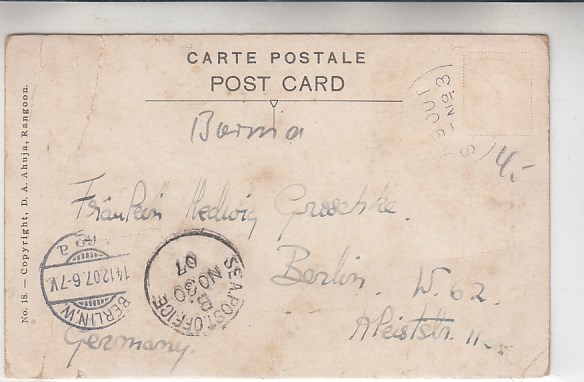 CARTE POSTALE
POST CARD
Burma
Fräulein Hedwig Groschke.
Berlin. W. 62.
Kleiststr. 11.
Germany.
No. 18. — Copyright, D. A. Ahuja, Rangoon.
SEA POST OFFICE
B
NO 30
07
BERLIN.W
14.12.07.6-7V.
62 a
4/-